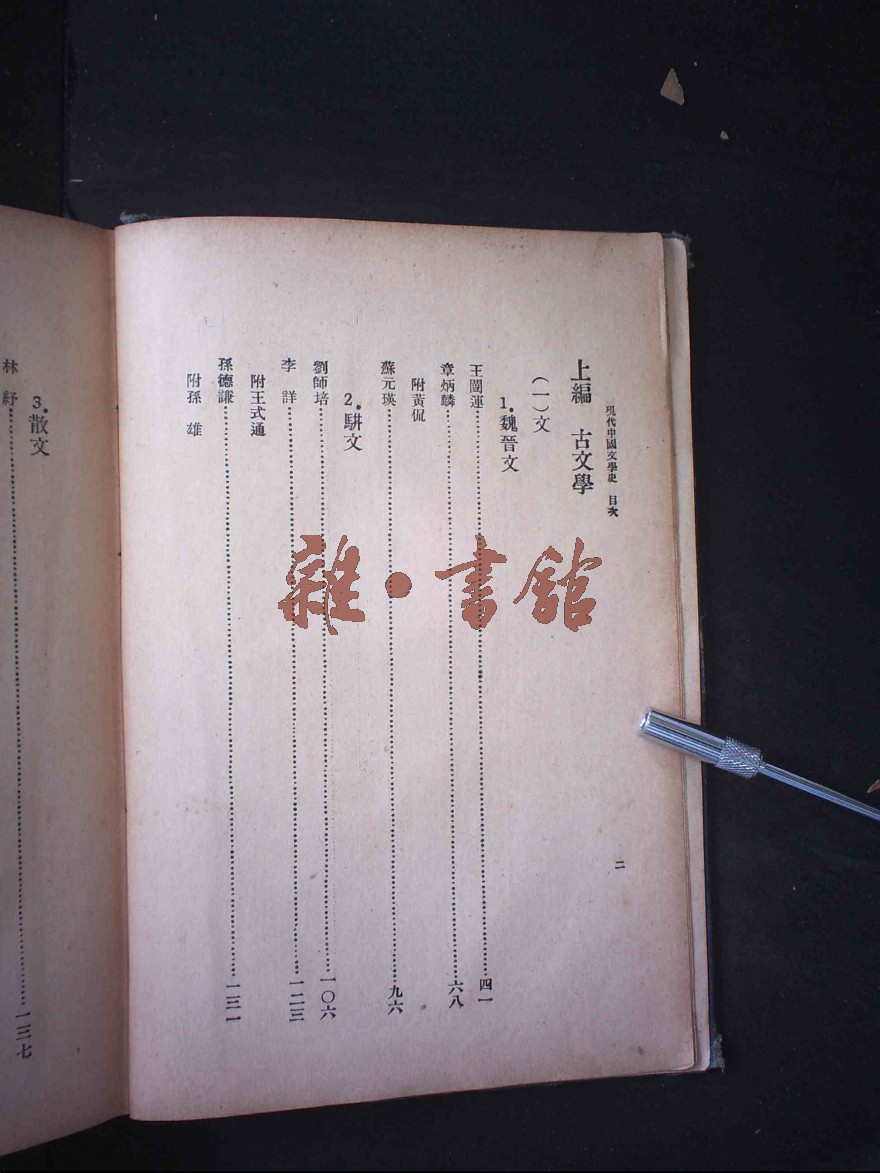 現代中國文學史 目次
二
上編 古文學
(一)文
1.魏晉文
王闓運……四一
章炳麟……六八
附黃侃
蘇元瑛……九六
2.駢文
劉師培……一〇六
李詳……一二三
附王式通
孫德謙……一三一
附孫雄
3.散文
林紓……一三七
雜·書館